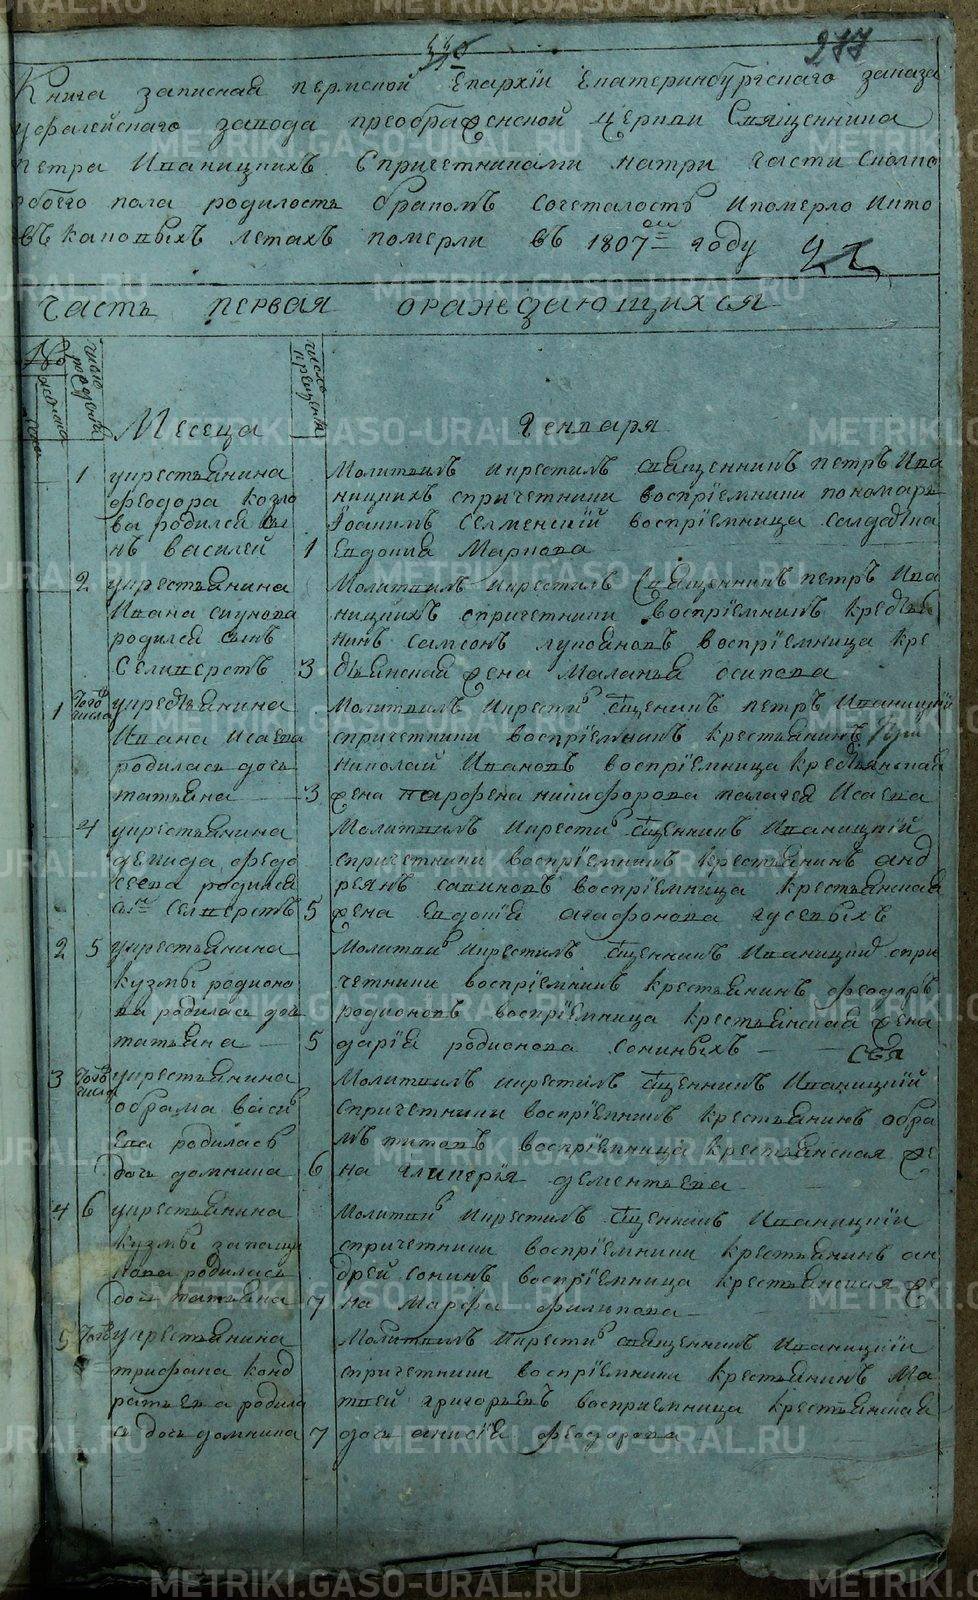 277
Книга записная пермской Епархїи Екатеринбургскаго заказа
уфалейскаго завода преображенской Церкви Священника
петра Иваницкихъ Спричетниками натри части Сколко
обоего пола родилось бракомъ сочеталось Ипомерло Икто
въ каковыхъ летахъ померли въ 1807 году
Часть первая оражедающихся
№
число рождения
число крещения
Месеца Генваря
1 укрестьянина
феодора козло
ва родился сы
нъ василей 1
Молитвилъ икрестилъ священникъ петръ Ива
ницкихъ спричетники воспрїемники пономарь
Їоакимъ Селменскїй воспрїемница салдатка
Евдокия Маркова
2 укрестьянина
Ивана скунова
родился сынъ
Селиверстъ 3
Молитвилъ икрестилъ Священникъ петръ Ива
ницкихъ спричетники воспрїемникъ крестья
нинъ самсонъ лукояновъ воспрїемница кре
стьянская жена Маланья осипова
1 того числа укрестьянина
Ивана Исаева
родилась дочь
татьяна 3
Молитвилъ Икрести сщенникъ петръ Иваницкїй
спричетники воспрїемникъ крестьянинъ
николай Ивановъ воспрїемница крестьянская
жена парфена никифорова палагея Исаева
4 укрестьянина
демида федо
сеева родился
сн Селиверстъ 5
Молитвилъ Икрести сщенникъ Иваницкїй
спричетники воспрїемникъ крестьянинъ анд
реянъ савиновъ воспрїемница крестьянская
жена Евдокїя агафонова гусевыхъ
2 5 укрестьянина
кузмы родионо
ва родилась доч
татьяна 5
Молитви Икрестилъ сщенникъ Иваницкий спри
четники воспрїемникъ крестьянинъ феодоръ
родионовъ воспрїемница крестьянская жена
дарїя родионова сониныхъ
3 того числа укрестьянина
обрама васи
Ева родилась
дочь домника 6
Молитвилъ икрестилъ сщенникъ Иваницкїй
спричетники воспрїемникъ крестьянинъ обра
мъ титовъ воспрїемница крестьянская же
на гликерїя дементьева
4 6 укрестьянина
кузмы запащи
кова родилась
дочь татьяна 7
Молитви Икрестилъ сщенникъ Иваницкїи
спричетники воспрїемники крестьянинъ ан
дрей сонинъ воспрїемница крестьянская же
на Марфа филипова
5 того укрестьянина
трифана конд
ратьева родила
сь дочь домника 7
Молитвилъ Икрести священникъ Иваницкїи
спричетники воспрїемники крестьянинъ Ма
твей григорьевъ восприемница крестьянская
дочь анисїя феодорова